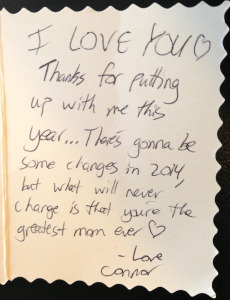 I LOVE YOU♡
Thanks for putting
up with me this
year... There's gonna be
some changes in 2014,
but what will never
change is that you're the
greatest mom ever ♡
- Love
Connor